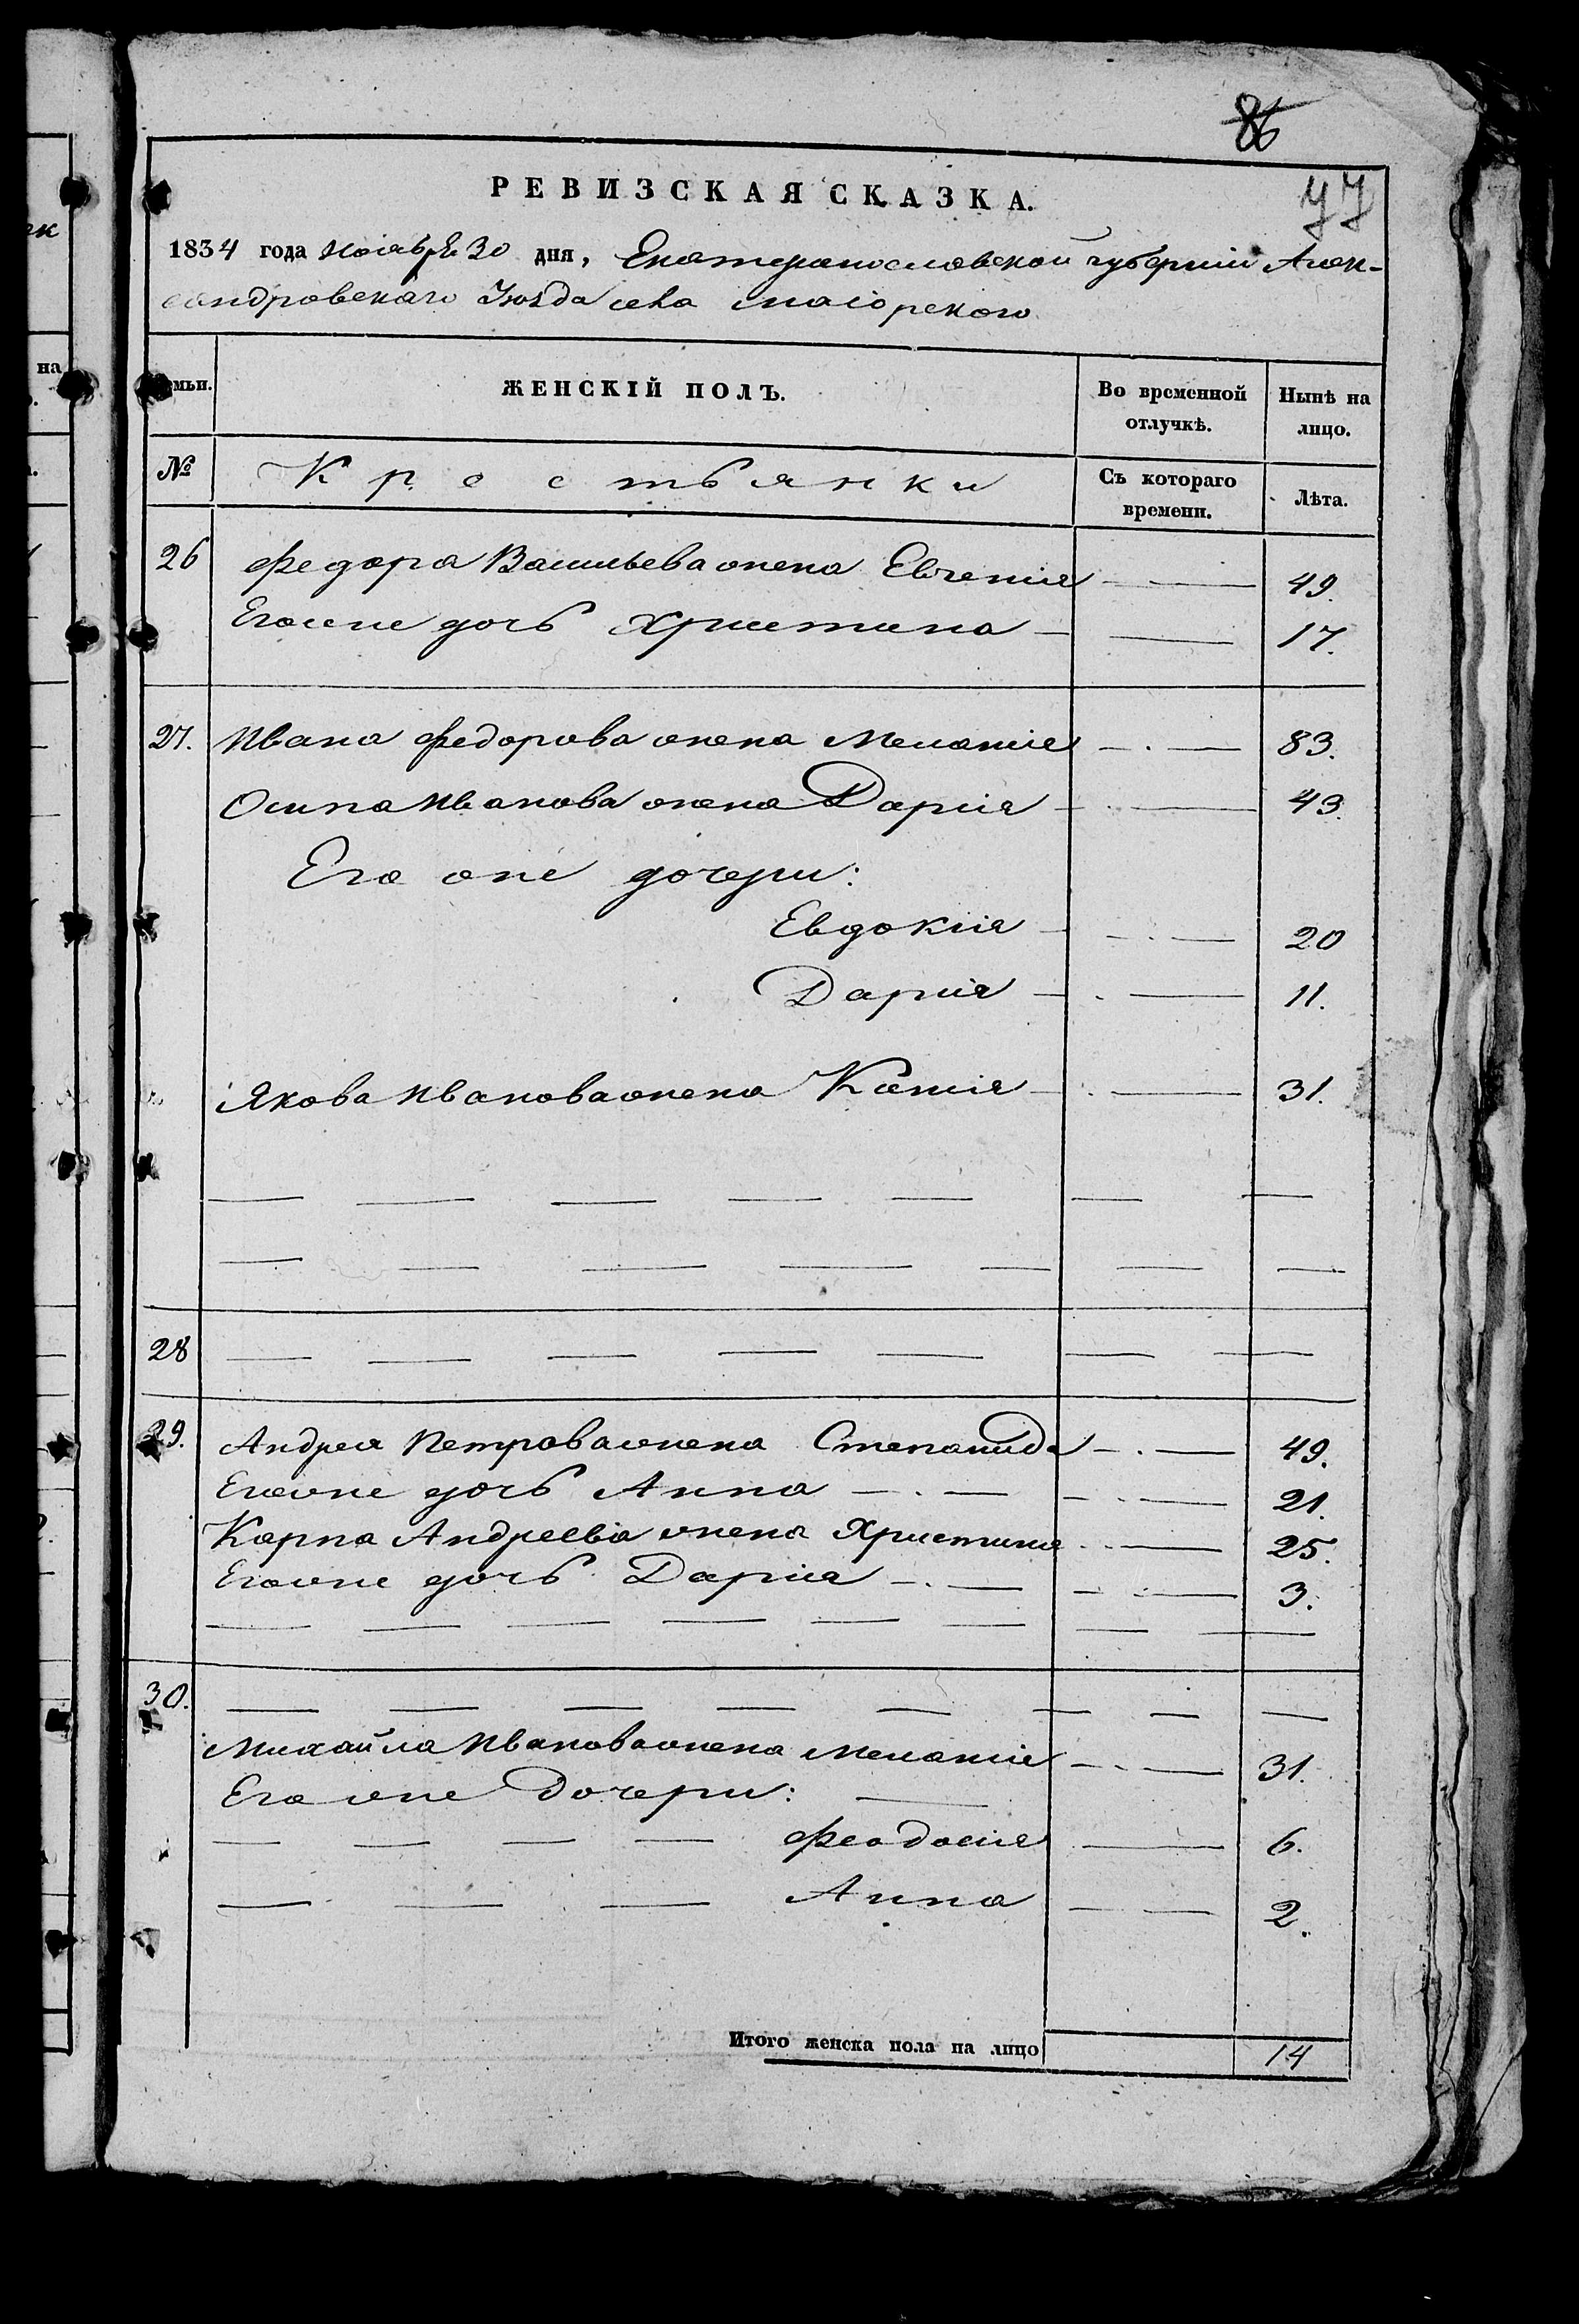 86
77
РЕВИЗСКАЯ СКАЗКА.
1834 года Ноября 30 дня, Екатеринославской губернии Алек-
сандровскаго Уезда села Маiорского
мьи.
ЖЕНСКІЙ ПОЛЪ.
Во временной отлучкѣ.
Нынѣ на лицо.
№
Крестьянки
Съ котораго времени.
Лѣта.
26 Федора Васильева жена Евгенія 49.
Его же дочь Христина 17.
27. Ивана Федорова жена Меланія 83.
Осипа Иванова жена Дарія 43.
Его же дочери:
Евдокія 20
Дарія 11.
Якова Иванова жена Ксенія 31.
28
29. Андрея Петрова жена Степанида 49.
Его же дочь Анна 21.
Карпа Андреева жена Христина 25.
Его же дочь Дарія 3.
30.
Михайла Иванова жена Меланія 31.
Его же дочери:
Феодосія 6.
Анна 2.
Итого женска пола на лицо 14